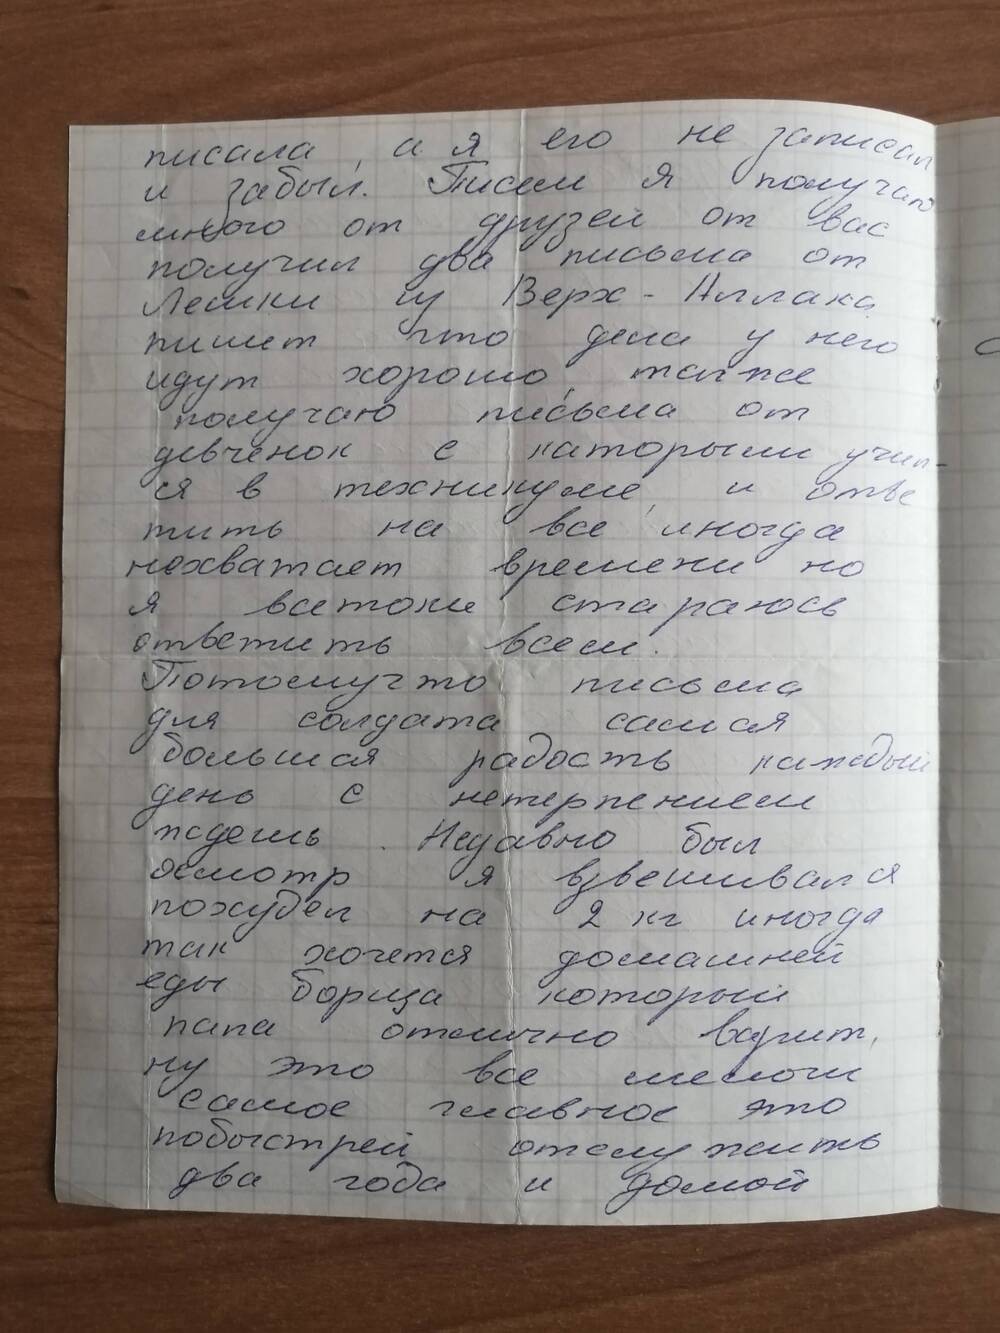 писала, а я его не записал
и забыл. Писем я получаю
много от друзей от вас
получил два письма от
Лешки из Верх-Аллака
пишет что дела у него
идут хорошо, также
получаю письма от
девченок с каторыми учил-
ся в техникуме и отве
тить на все иногда
нехватает времени но
я всетоки стараюсь
ответить всем.
Потомучто письма
для солдата самая
большая радость каждый
день с нетерпением
ждешь. Недавно был
осмотр я взвешивался
похудел на 2 кг иногда
так хочется домашней
еды борща который
папа отлично варит,
ну это все мелочи
самое главное это
побыстрей отслужить
два года и домой